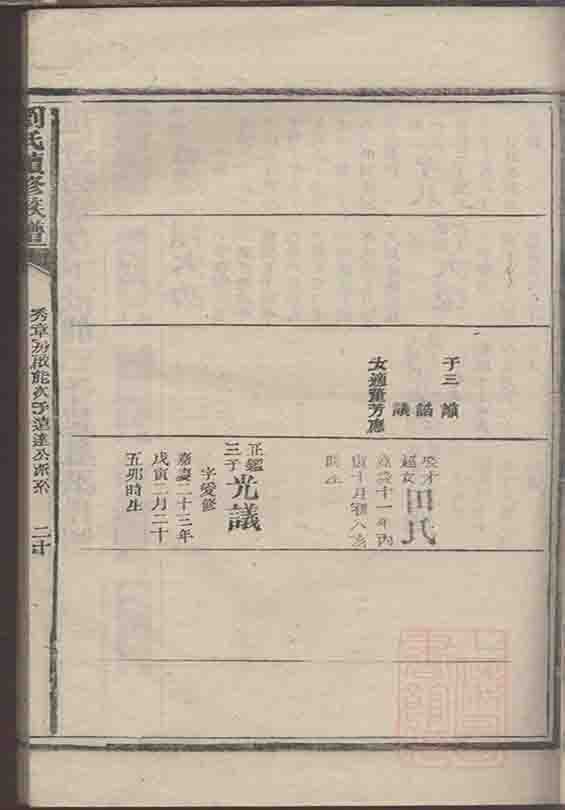 子三
議
女適董芳應
娶才
超女
田氏
嘉慶十一年丙
寅十月初八亥
時生
正鑑
三子
光議
字愛修
嘉慶二十三年
戊寅二月二十
五卯時生
劉氏續修族譜
秀章房啟能次子遠達公派系
二十